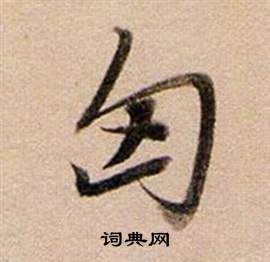 匈
词典网